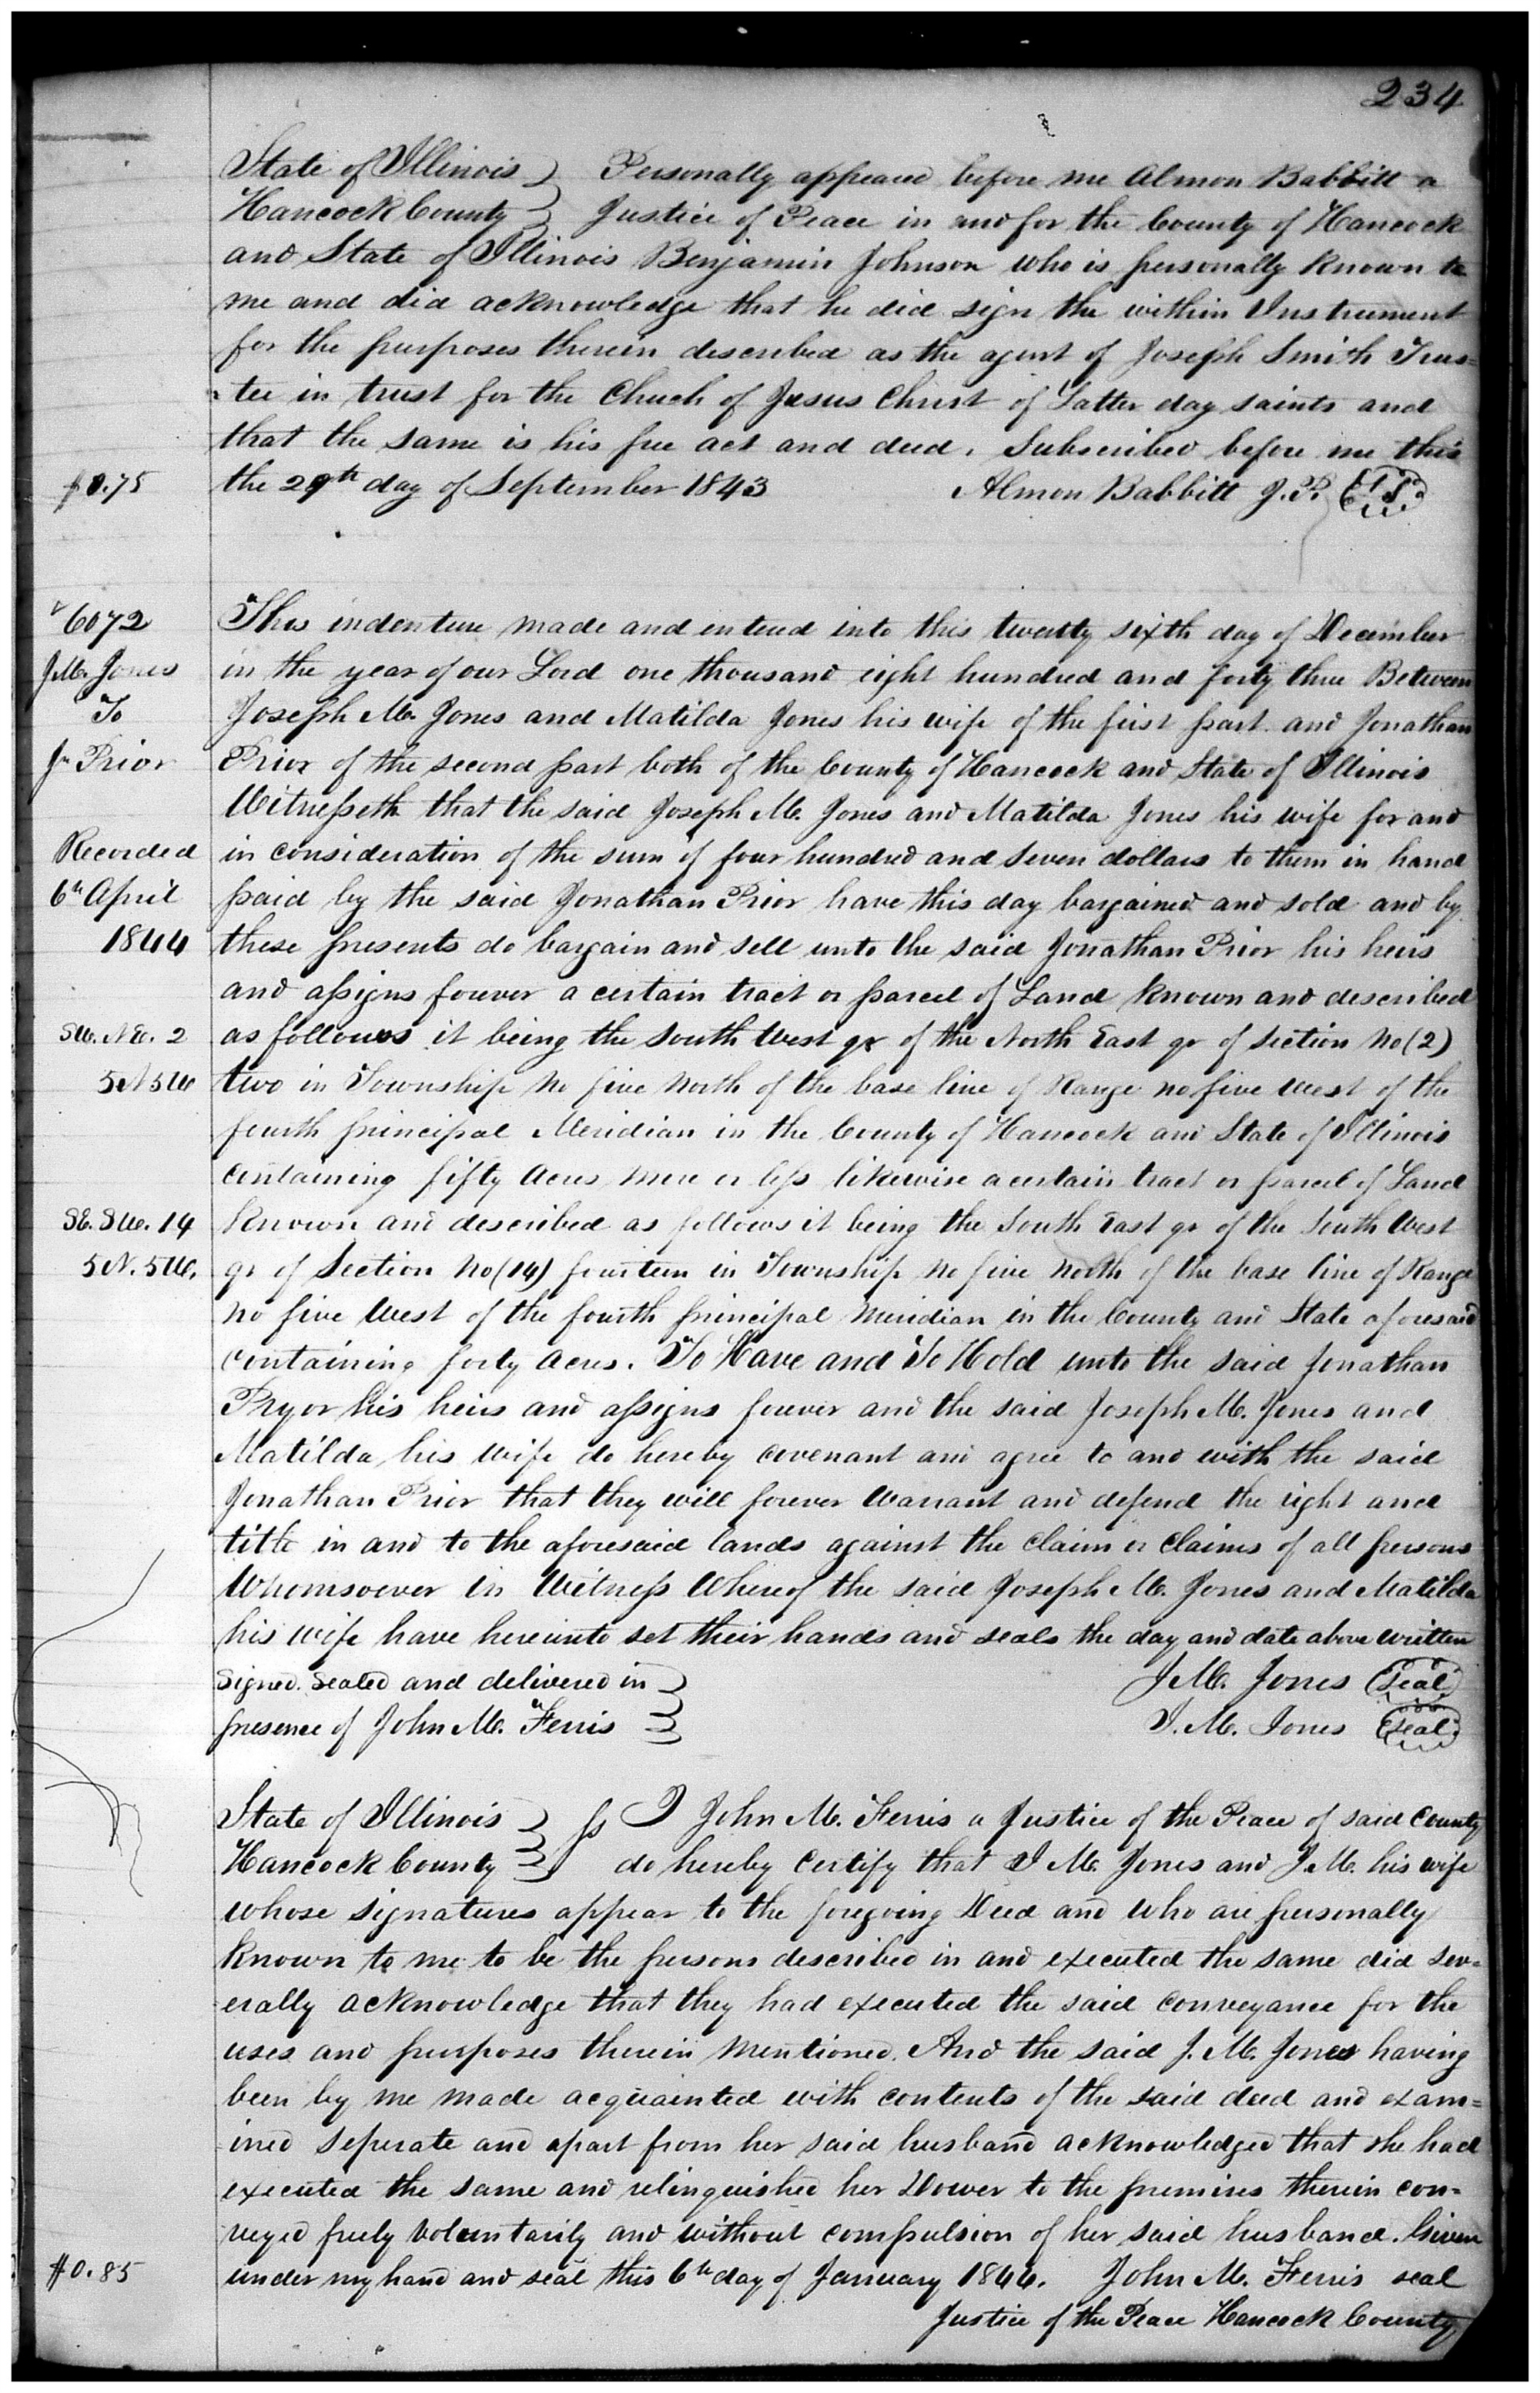 234
State of Illinois } Personally appeared before me Almon Babbitt a
Hancock County } Justice of Peace in and for the County of Hancock
and State of Illinois Benjamin Johnson who is personally known to
me and did acknowledge that he did sign the within Instrument
for the purposes therein described as the agent of Joseph Smith Trus=
tee in trust for the Chuch of Jesus Christ of Latter day saints and
that the same is his free act and deed. Subscribed before me this
$0.75 the 29th day of September 1843 Almon Babbitt J.P. L.S.
6072 This indenture made and entered into this twenty sixth day of December
J.M. Jones in the year of our Lord one thousand eight hundred and forty three Between
To Joseph M. Jones and Matilda Jones his wife of the first part and Jonathan
Jn Prior Prior of the second part both of the County of Hancock and State of Illinois
Witnesseth that the said Joseph M. Jones and Matilda Jones his wife for and
Recorded in consideration of the sum of four hundred and seven dollars to them in hand
6th April paid by the said Jonathan Prior have this day bargained and sold and by
1844 these presents do bargain and sell unto the said Jonathan Prior his heirs
and assigns forever a certain tract or parcel of Land known and described
SW. NE. 2 as follows it being the South West qr of the North East qr of section No (2)
5N 5W two in Township no five North of the base line of Range no five West of the
fourth principal Meridian in the County of Hancock and State of Illinois
containing fifty Acres more or less likewise a certain tract or parcel of Land
SE. SW. 14 known and described as follows it being the South East qr of the South West
5N. 5W. qr of Section No (14) fourteen in Township no five North of the base line of Range
no five West of the fourth principal Meridian in the County and State aforesaid
containing forty acres. To Have and To Hold unto the said Jonathan
Pryor his heirs and assigns forever and the said Joseph M. Jones and
Matilda his wife do hereby covenant and agree to and with the said
Jonathan Prior that they will forever Warrant and defend the right and
title in and to the aforesaid lands against the claim or claims of all persons
Whomsoever In Witness Whereof the said Joseph M. Jones and Matilda
his wife have hereunto set their hands and seals the day and date above written
Signed. Sealed and delivered in } J.M. Jones Seal
presence of John M. Ferris } J. M. Jones Seal
State of Illinois } ss I John M. Ferris a Justice of the Peace of said County
Hancock County } do hereby Certify that J M. Jones and J. M. his wife
whose signatures appear to the foregoing Deed and who are personally
known to me to be the persons described in and executed the same did sev=
erally acknowledge that they had executed the said conveyance for the
uses and purposes therein mentioned. And the said J. M. Jones having
been by me made acquainted with contents of the said deed and exam=
ined seperate and apart from her said husband acknowledged that she had
executed the same and relinquished her Dower to the premises therein con=
veyed freely voluntarily and without compulsion of her said husband. Given
$0.85 under my hand and seal this 6th day of January 1844. John M. Ferris seal
Justice of the Peace Hancock County